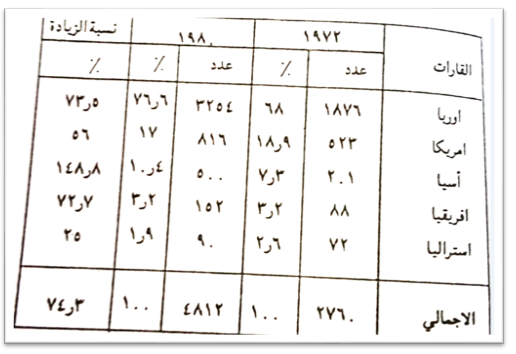 القارات ١٩٧٢ ١٩٨٠ نسبة الزيادة
عدد ٪ عدد ٪ ٪
اوربا ١٨٧٦ ٦٨ ٣٢٥٤ ٧٦ر٦ ٧٣ر٥
امريكا ٥٢٣ ١٨ر٩ ٨١٦ ١٧ ٥٦
أسيا ٢٠١ ٧ر٣ ٥٠٠ ١٠ر٤ ١٤٨ر٨
افريقيا ٨٨ ٣ر٢ ١٥٢ ٣ر٢ ٧٢ر٧
استراليا ٧٢ ٢ر٦ ٩٠ ١ر٩ ٢٥
الاجمالي ٢٧٦٠ ١٠٠ ٤٨١٢ ١٠٠ ٧٤ر٣